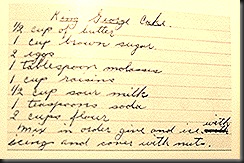 King George Cake.
1/2 cup of butter
1 cup brown sugar.
2 eggs
2 tablespoon molasses
1 cup raisins
1/2 cup sour milk
1 teaspoons soda
2 cups flour
mix in order give and ice with
iceing and cover with nuts.